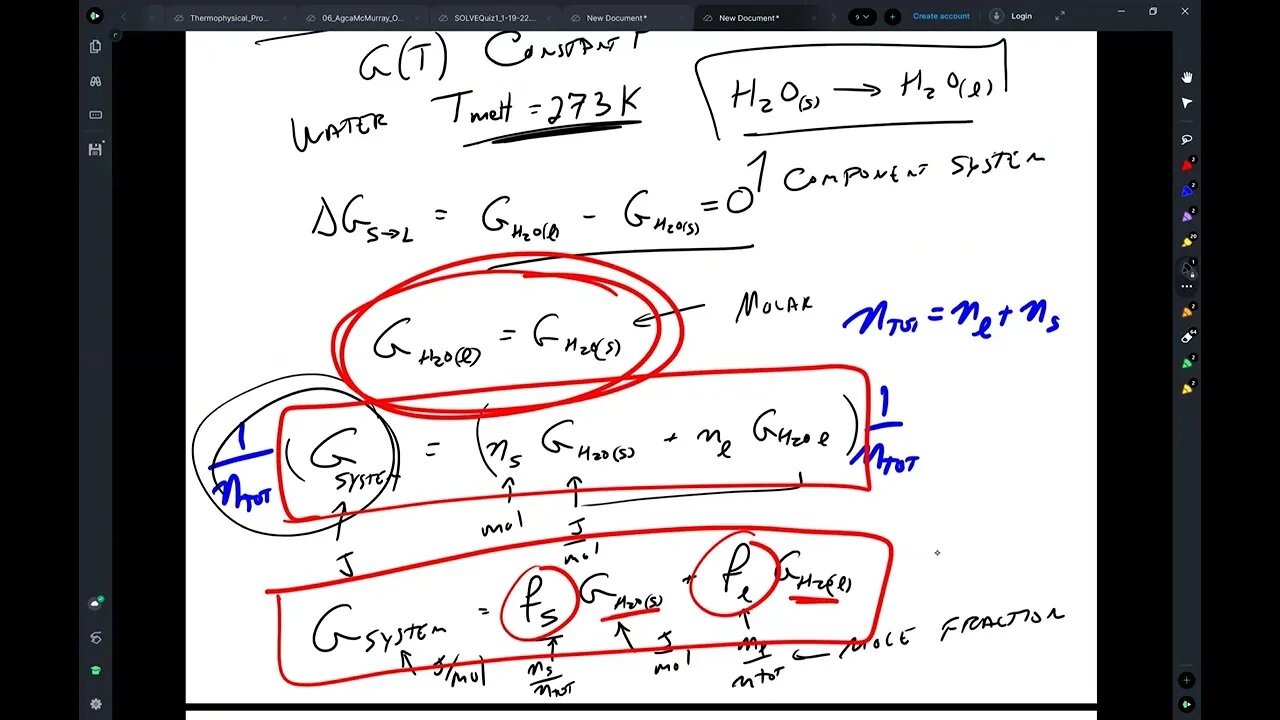 Thermophysical_Pro... 06_AgcaMcMurray_O... SOLVEQuiz1_1-19-22.... New Document* New Document* 9 Create account Login
G(T) CONSTANT P
WATER T_melt = 273K
H₂O(s) → H₂O(l)
1 COMPONENT SYSTEM
ΔG_S→L = G_H₂O(l) - G_H₂O(s) = 0
G_H₂O(l) = G_H₂O(s) ← MOLAR
n_TOT = n_l + n_s
1/n_TOT (G_SYSTEM) = (n_s G_H₂O(s) + n_l G_H₂O l) 1/n_TOT
J mol J/mol
G_SYSTEM = f_s G_H₂O(s) + f_l G_H₂(l)
J/mol n_s/n_TOT J/mol n_l/n_tot ← MOLE FRACTION